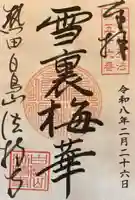 奉拝
令和八年二月二十六日
雪裏梅華
熱田白鳥山法持寺